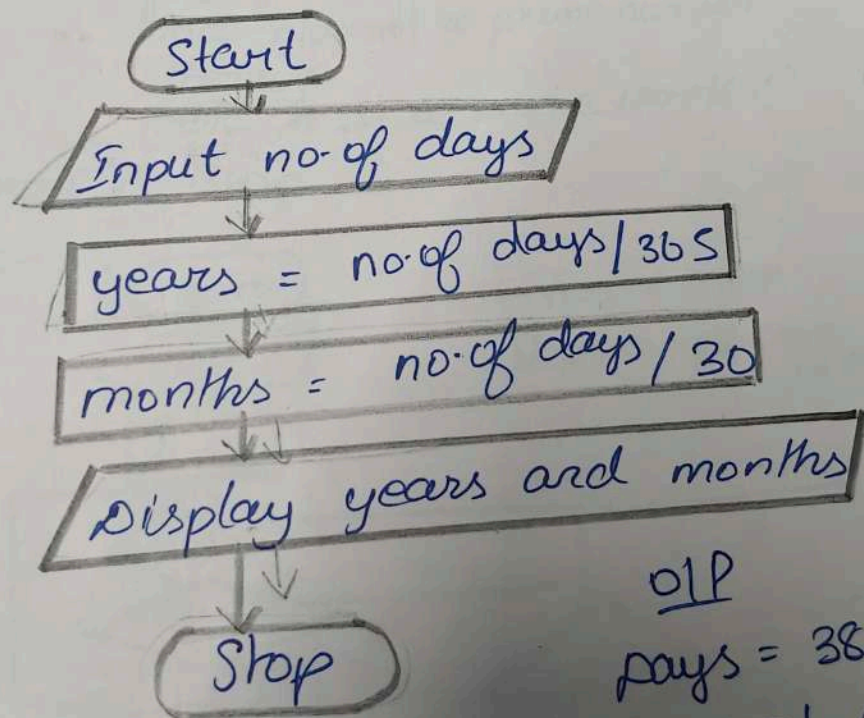 Start
Input no. of days
years = no. of days / 365
months = no. of days / 30
Display years and months
Stop
O/P
Days = 38